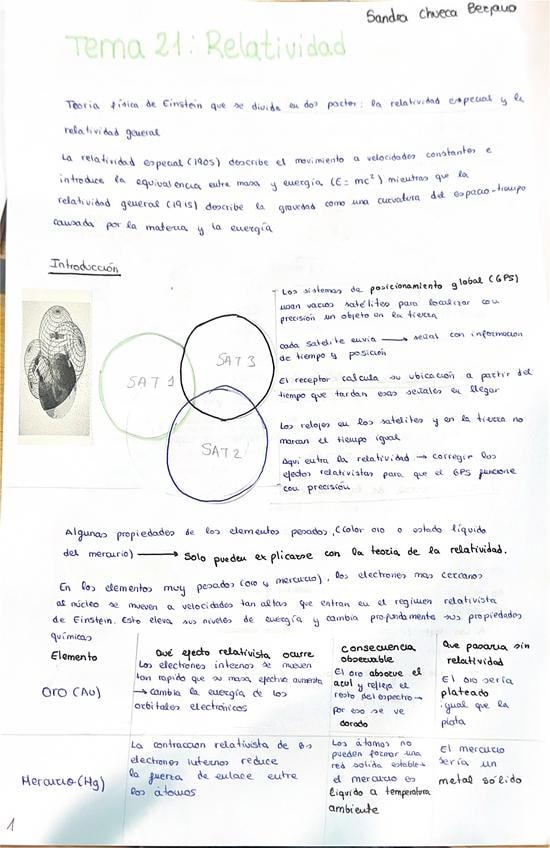 Sandra Chueca Berzano
Tema 21: Relatividad
Teoria física de Einstein que se divide en dos partes: la relatividad especial y la
relatividad general
La relatividad especial (1905) describe el movimiento a velocidades constantes e
introduce la equivalencia entre masa y energía (E = mc²) mientras que la
relatividad general (1915) describe la gravedad como una curvatura del espacio-tiempo
causada por la materia y la energía
Introducción
SAT 1
SAT 3
SAT 2
Los sistemas de posicionamiento global (GPS)
usan varios satélites para localizar con
precisión un objeto en la tierra
cada satelite envia → señal con informacion
de tiempo y posición
El receptor calcula su ubicación a partir del
tiempo que tardan esas señales en llegar
Los relojes en los satelites y en la tierra no
marcan el tiempo igual
Aqui entra la relatividad → corregir los
efectos relativistas para que el GPS funcione
con precisión
Algunas propiedades de los elementos pesados, (color oro o estado líquido
del mercurio) → Solo pueden explicarse con la teoria de la relatividad.
En los elementos muy pesados (oro y mercurio), los electrones mas cercanos
al núcleo se mueven a velocidades tan altas que entran en el regimen relativista
de Einstein. Esto eleva sus niveles de energía y cambia profundamente sus propiedades
químicas
Elemento
Qué efecto relativista ocurre
consecuencia
observable
Que pasaria sin
relatividad
Oro (Au)
Los electrones internos se mueven
tan rapido que su masa efectiva aumenta
→ cambia la energía de los
orbitales electrónicos
El oro absorve el
azul y refleja el
resto del espectro →
por eso se ve
dorado
El oro sería
plateado
igual que la
plata
Mercurio (Hg)
La contraccion relativista de los
electrones internos reduce
la fuerza de enlace entre
los átomos
Los átomos no
pueden formar una
red solida estable →
el mercurio es
líquido a temperatura
ambiente
El mercurio
sería un
metal sólido
1